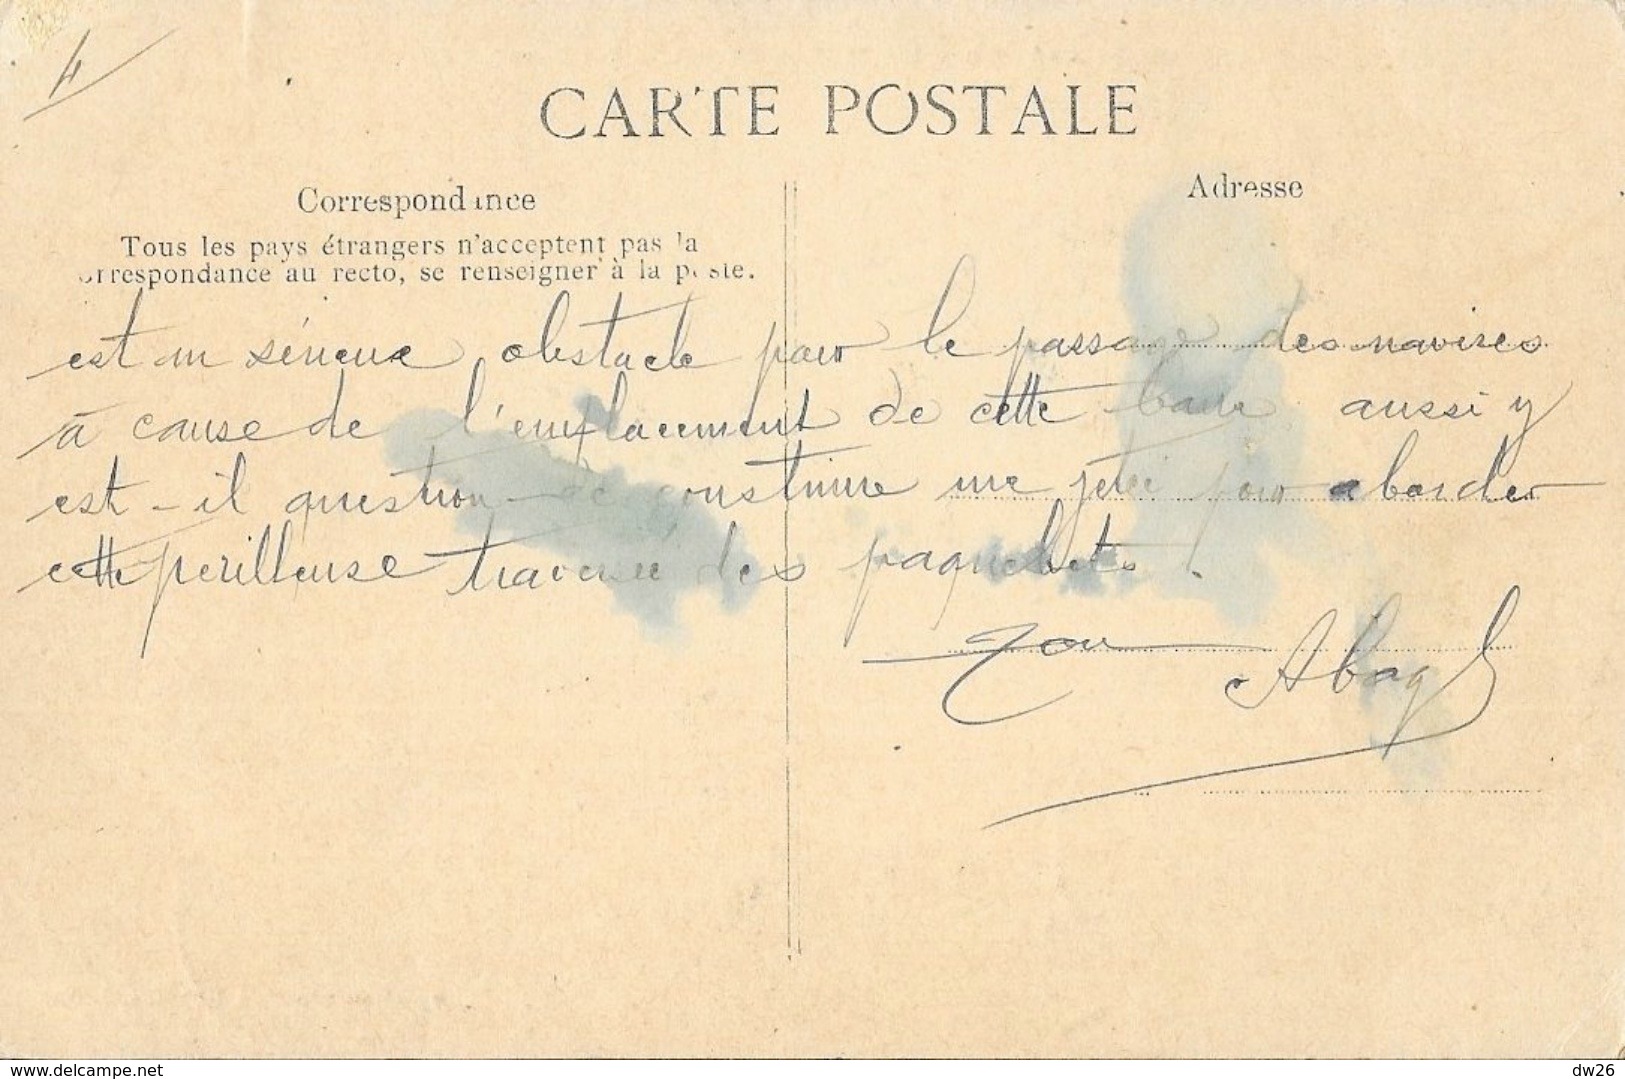 4
CARTE POSTALE
Correspondance
Adresse
Tous les pays étrangers n'acceptent pas la
correspondance au recto, se renseigner à la poste.
est un sérieux obstacle pour le passage des navires
à cause de l'emplacement de cette barre aussi y
est-il question de construire une jetée pour aborder
cette perilleuse traversée des paquebots.
delcampe.net
dw26